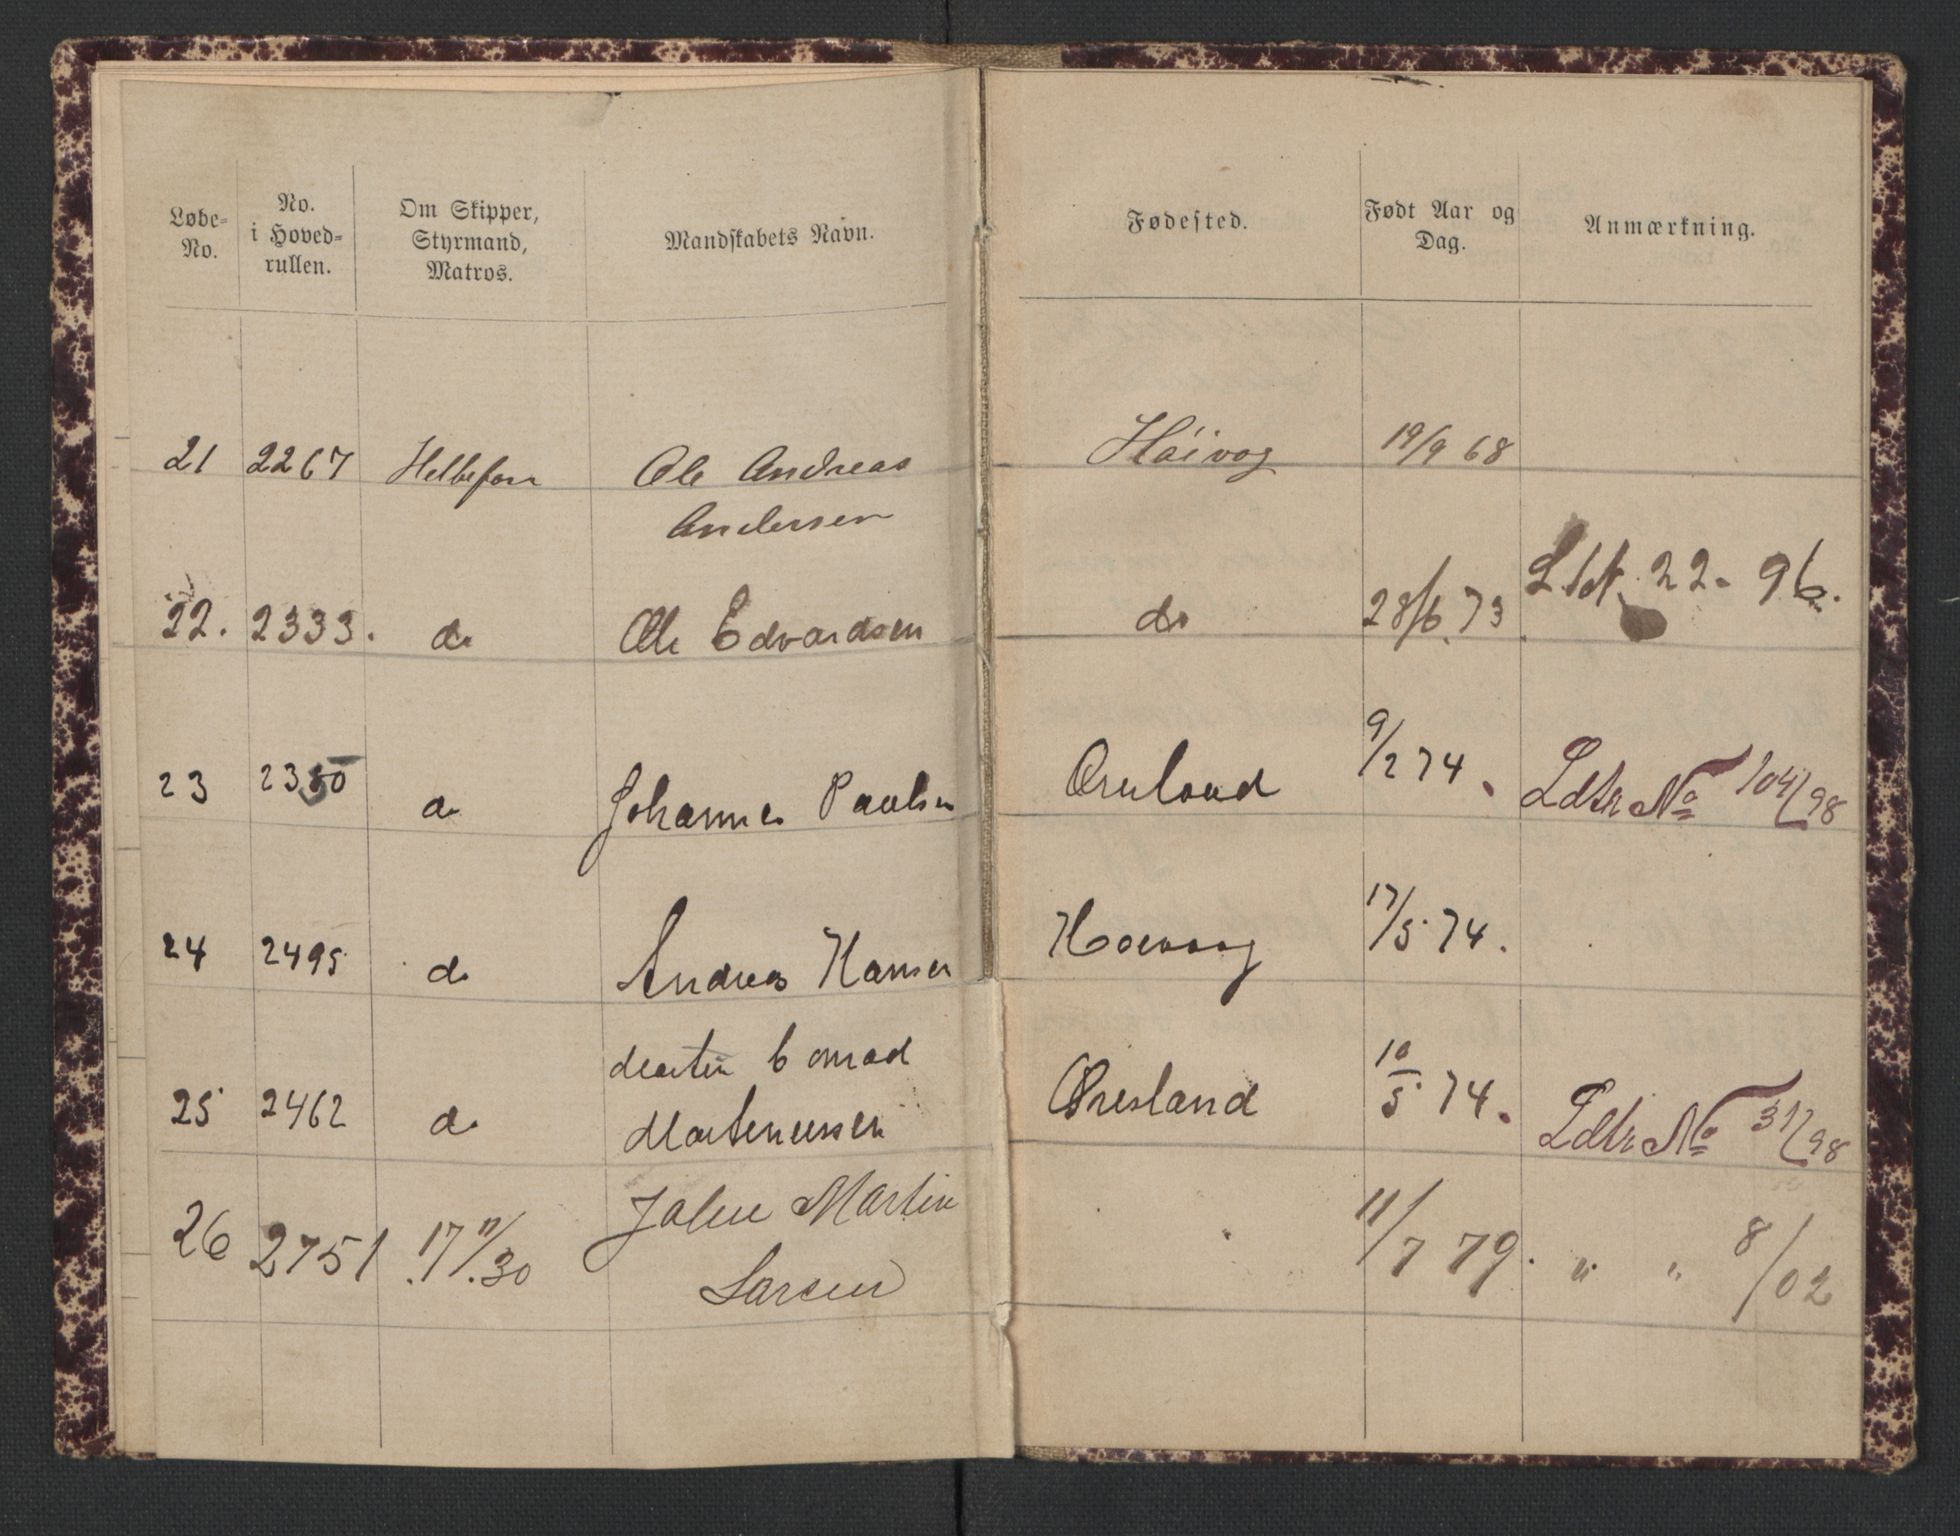 Løbe-No. No. i Hoved-rullen. Om Skipper, Styrmand, Matros. Mandskabets Navn. Fødested. Født Aar og Dag. Anmærkning.
21 2267 Helbefarn Ole Andreas Høivog 19/9 68
Andersen
22. 2333. do Ole Edvardsen do 28/6 73 Ldt. 22-96.
23 do Johannes Paulsen 9/2 74. Ldtr No 104/98
24 2495 do Andreas Hansen Hoevaag 17/5 74.
Martin Conrad
25 2462 do Martenussen Øresland 10/5 74. Ldtr No 31/98
26 2751 .17 11/.30 Martin " 11/7 79. " " 8/02
Larsen